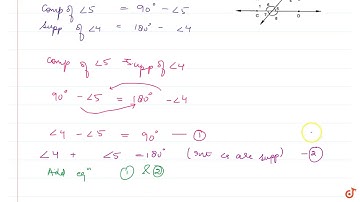 Comp of ∠5 = 90° - ∠5
Supp of ∠4 = 180° - ∠4
Comp of ∠5 = Supp of ∠4
90° - ∠5 = 180° - ∠4
∠4 - ∠5 = 90° — ①
∠4 + ∠5 = 180° (Int ∠s are supp) - ②
Add eqⁿ ① & ②